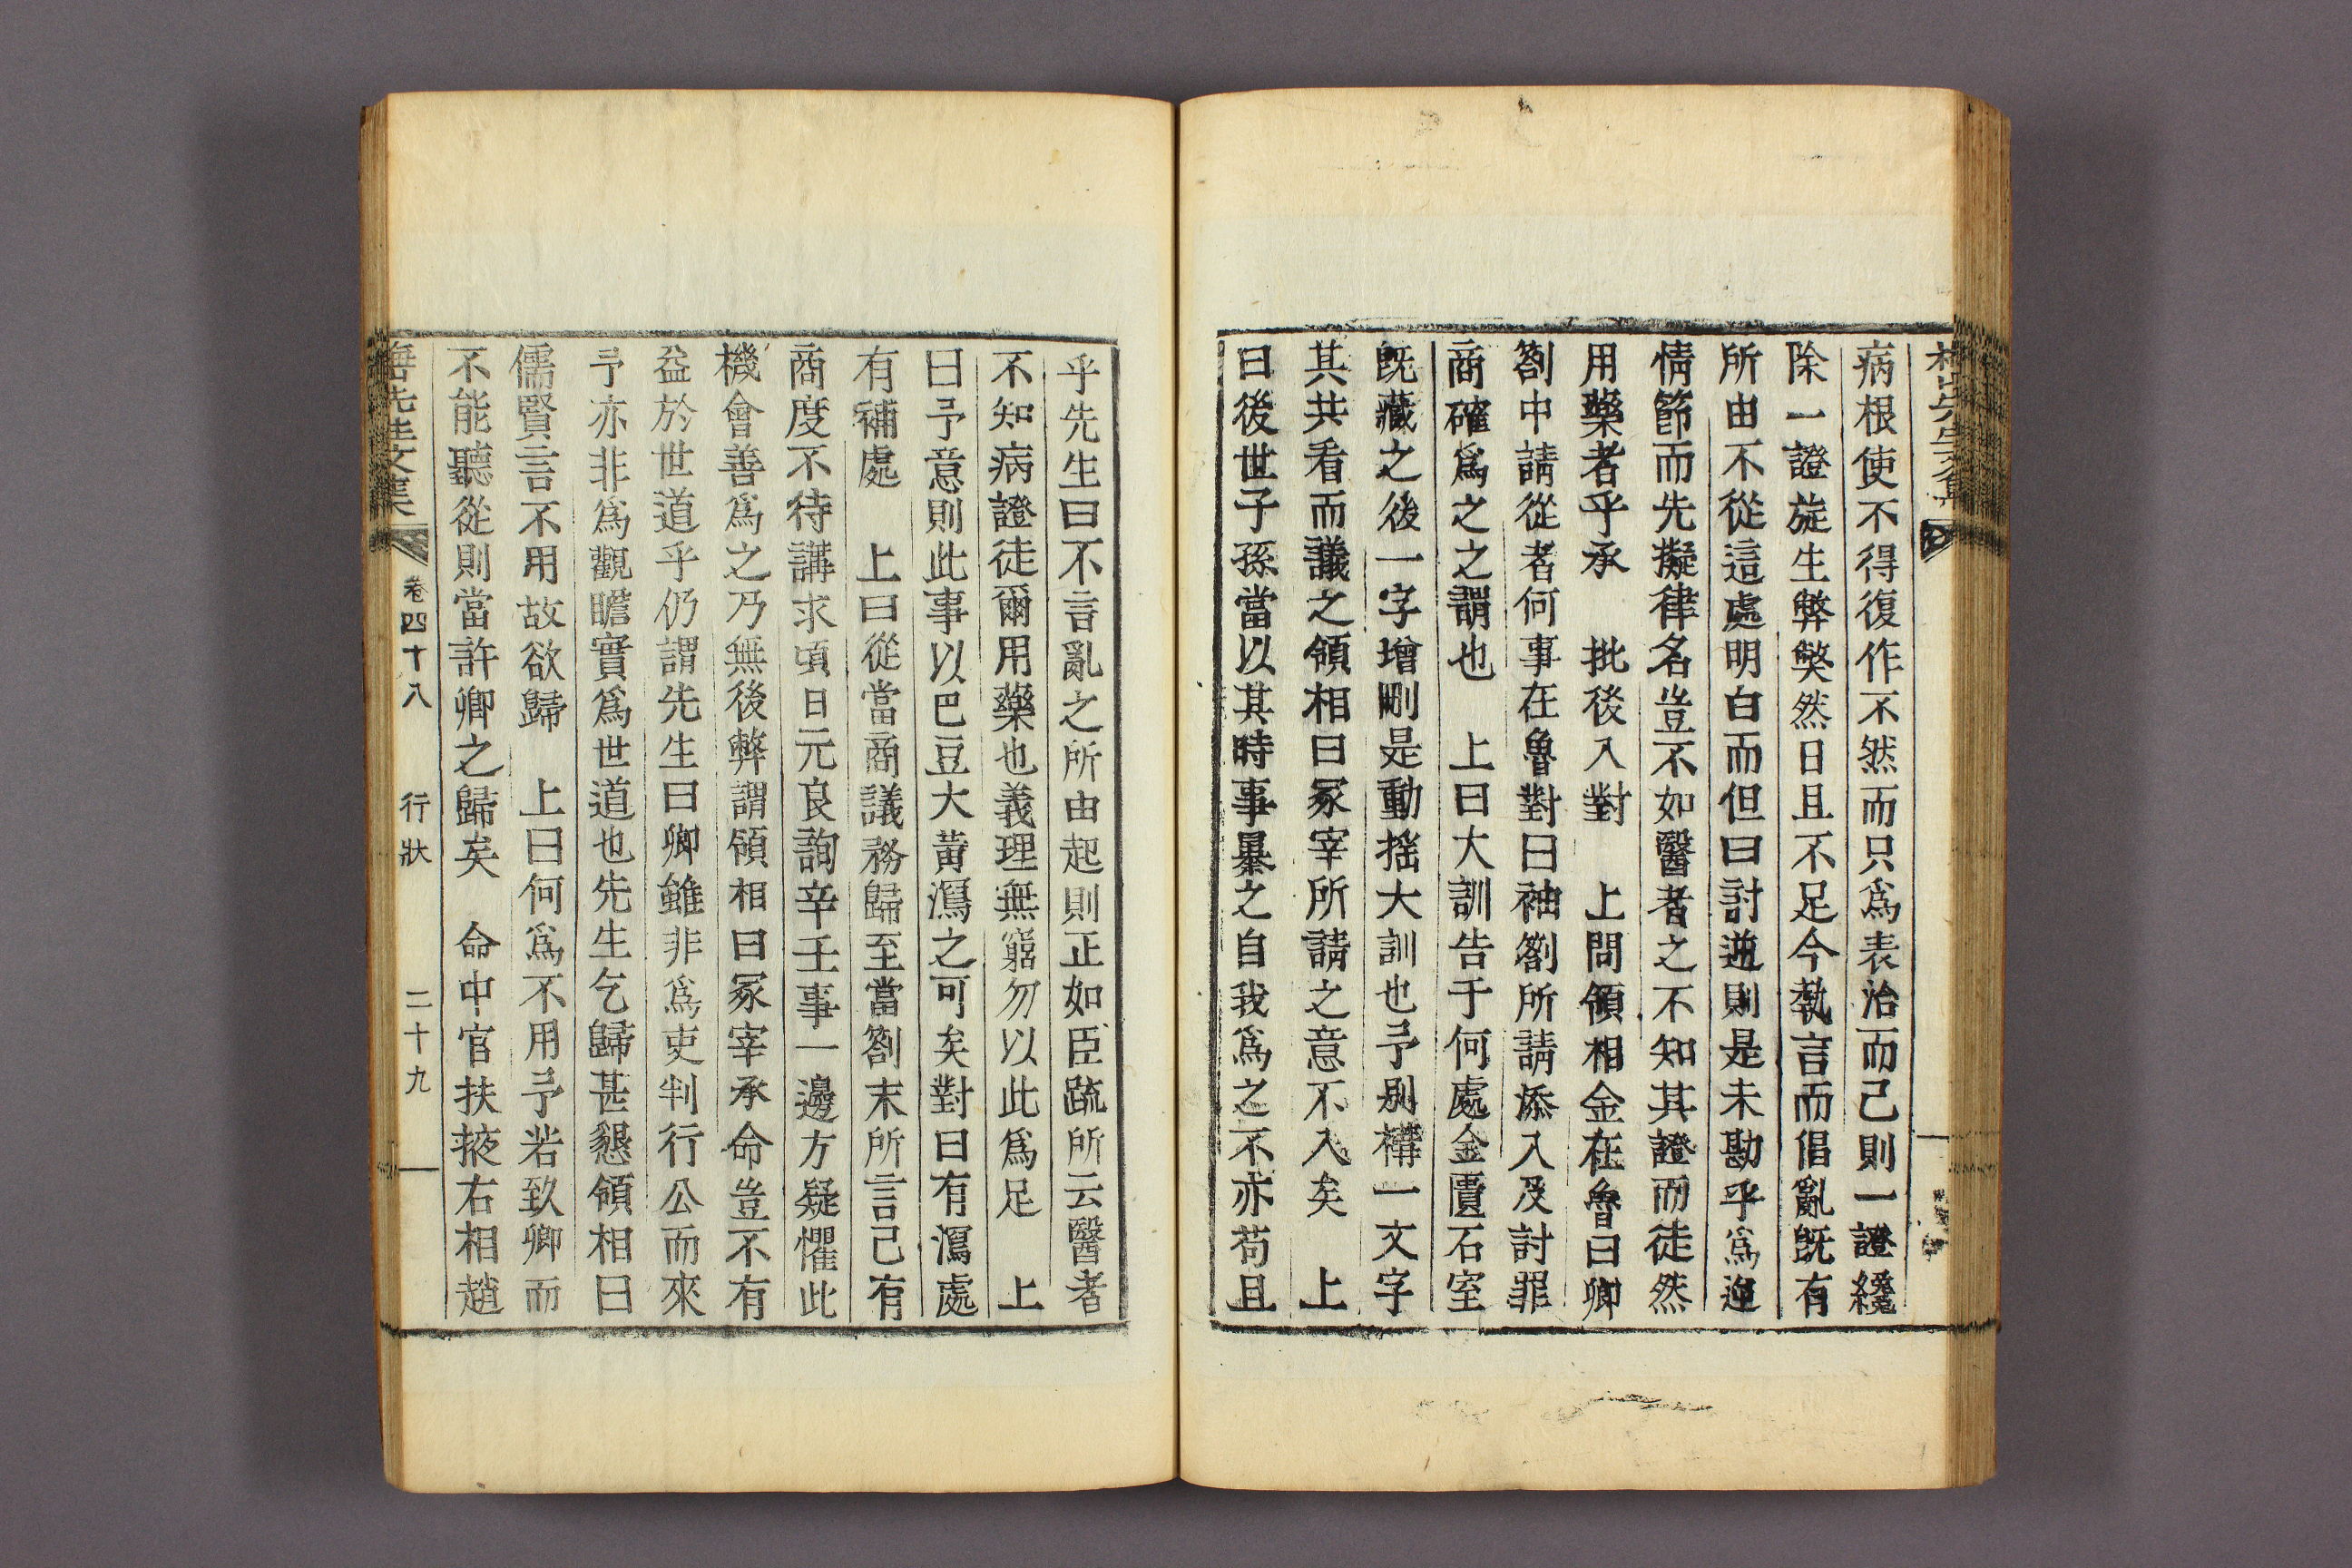 病根使不得復作不然而只爲表治而己則一證纔
除一證旋生弊獘然日且不足今執言而倡亂旣有
所由不從這處明白而但曰討逆則是未勘乎爲逆
情節而先擬律名豈不如醫者之不知其證而徒然
用藥者乎承 批後入對 上問領相金在魯曰卿
劄中請從者何事在魯對曰袖劄所請添入及討罪
商確爲之之謂也 上曰大訓告于何處金匱石室
旣藏之後一字增刪是動搖大訓也予別構一文字
其共看而議之領相曰冢宰所請之意不入矣 上
曰後世子孫當以其時事暴之自我爲之不亦苟且
乎先生曰不言亂之所由起則正如臣疏所云醫者
不知病證徒爾用藥也義理無窮勿以此爲足 上
曰予意則此事以巴豆大黃瀉之可矣對曰有瀉處
有補處 上曰從當商議務歸至當劄末所言己有
商度不待講求頃日元良詢辛壬事一邊方疑懼此
機會善爲之乃無後弊謂領相曰冢宰承命豈不有
益於世道乎仍謂先生曰卿雖非爲吏判行公而來
予亦非爲觀瞻實爲世道也先生乞歸甚懇領相曰
儒賢言不用故欲歸 上曰何爲不用予若致卿而
不能聽從則當許卿之歸矣 命中官扶掖右相趙
先生文集 卷四十八 行狀 二十九